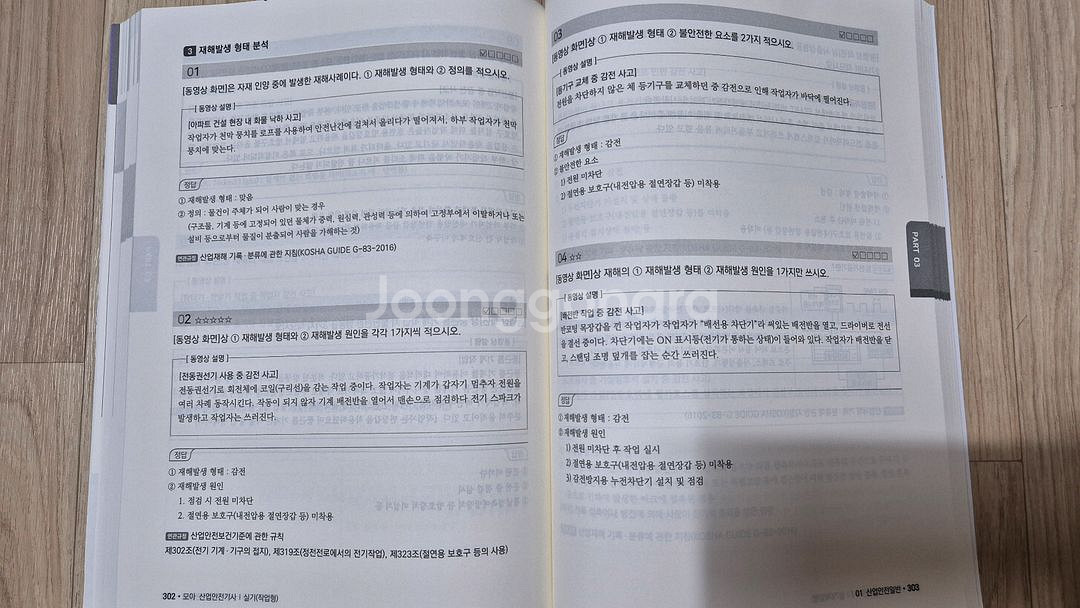 3 재해발생 형태 분석
01
[동영상 화면]은 자재 인양 중에 발생한 재해사례이다. ① 재해발생 형태와 ② 정의를 적으시오.
[동영상 설명]
[아파트 건설 현장 내 화물 낙하 사고]
작업자가 천막 뭉치를 로프를 사용하여 안전난간에 걸쳐서 올리다가 떨어져서, 하부 작업자가 천막
뭉치에 맞는다.
정답
① 재해발생 형태 : 맞음
② 정의 : 물건이 주체가 되어 사람이 맞는 경우
(구조물, 기계 등에 고정되어 있던 물체가 중력, 원심력, 관성력 등에 의하여 고정부에서 이탈하거나 또는
설비 등으로부터 물질이 분출되어 사람을 가해하는 것)
연관규정 산업재해 기록·분류에 관한 지침(KOSHA GUIDE G-83-2016)
02 ☆☆☆☆☆
[동영상 화면]상 ① 재해발생 형태와 ② 재해발생 원인을 각각 1가지씩 적으시오.
[동영상 설명]
[전동권선기 사용 중 감전 사고]
전동권선기로 회전체에 코일(구리선)을 감는 작업 중이다. 작업자는 기계가 갑자기 멈추자 전원을
여러 차례 동작시킨다. 작동이 되지 않자 기계 배전반을 열어서 맨손으로 점검하다 전기 스파크가
발생하고 작업자는 쓰러진다.
정답
① 재해발생 형태 : 감전
② 재해발생 원인
1. 점검 시 전원 미차단
2. 절연용 보호구(내전압용 절연장갑 등) 미착용
연관규정 산업안전보건기준에 관한 규칙
제302조(전기 기계·기구의 접지), 제319조(정전전로에서의 전기작업), 제323조(절연용 보호구 등의 사용)
302 • 모아 산업안전기사 | 실기(작업형)
03
[동영상 화면]상 ① 재해발생 형태 ② 불안전한 요소를 2가지 적으시오.
[동영상 설명]
[등기구 교체 중 감전 사고]
전원을 차단하지 않은 체 등기구를 교체하던 중 감전으로 인해 작업자가 바닥에 떨어진다.
정답
① 재해발생 형태 : 감전
② 불안전한 요소
1) 전원 미차단
2) 절연용 보호구(내전압용 절연장갑 등) 미착용
04 ☆☆
[동영상 화면]상 재해의 ① 재해발생 형태 ② 재해발생 원인을 1가지만 쓰시오.
[동영상 설명]
[배전반 작업 중 감전 사고]
반코팅 목장갑을 낀 작업자가 작업자가 "배선용 차단기"라 씌있는 배전반을 열고, 드라이버로 전선
을 결선 중이다. 차단기에는 ON 표시등(전기가 통하는 상태)이 들어와 있다. 작업자가 배전반을 닫
고, 스탠딩 조명 덮개를 잡는 순간 쓰러진다.
정답
① 재해발생 형태 : 감전
② 재해발생 원인
1) 전원 미차단 후 작업 실시
2) 절연용 보호구(내전압용 절연장갑 등) 미착용
3) 감전방지용 누전차단기 설치 및 점검
PART 03
01 산업안전일반 • 303
Joonggonara